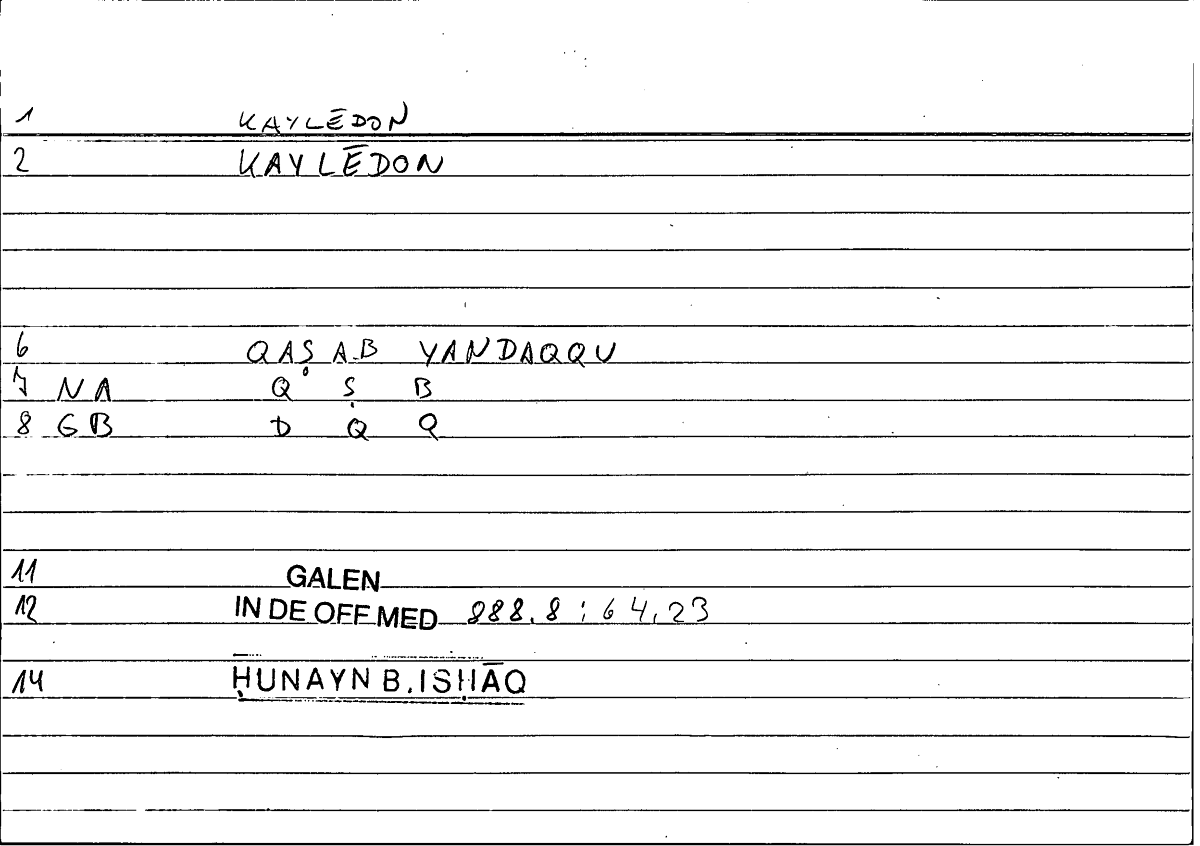 1 KAYLĒDON
2 KAYLĒDON
6 QAṢAB YANDAQQU
7 NA Q Ṣ B
8 GB D Q Q
11 GALEN
12 IN DE OFF MED 888.8 : 64,23
14 ḤUNAYN B. ISḤĀQ